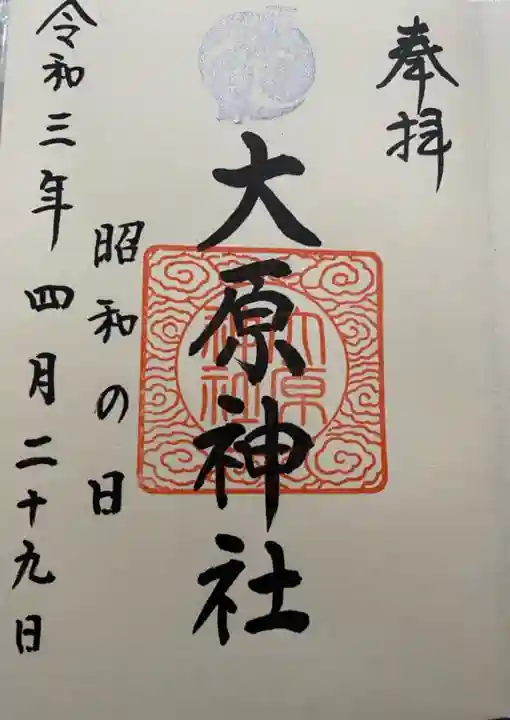 奉拝
大原神社
大原
神社
昭和の日
令和三年四月二十九日